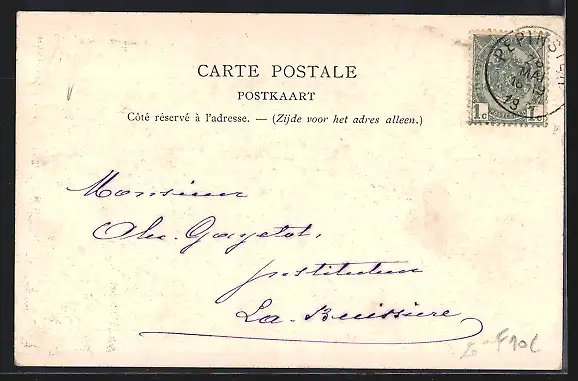 CARTE POSTALE
POSTKAART
Côté réservé à l'adresse. — (Zijde voor het adres alleen.)
PEPINSTER
MAI
1c 1c
Monsieur
Alex. Gayetot,
Instituteur
La-Buissière
F10C